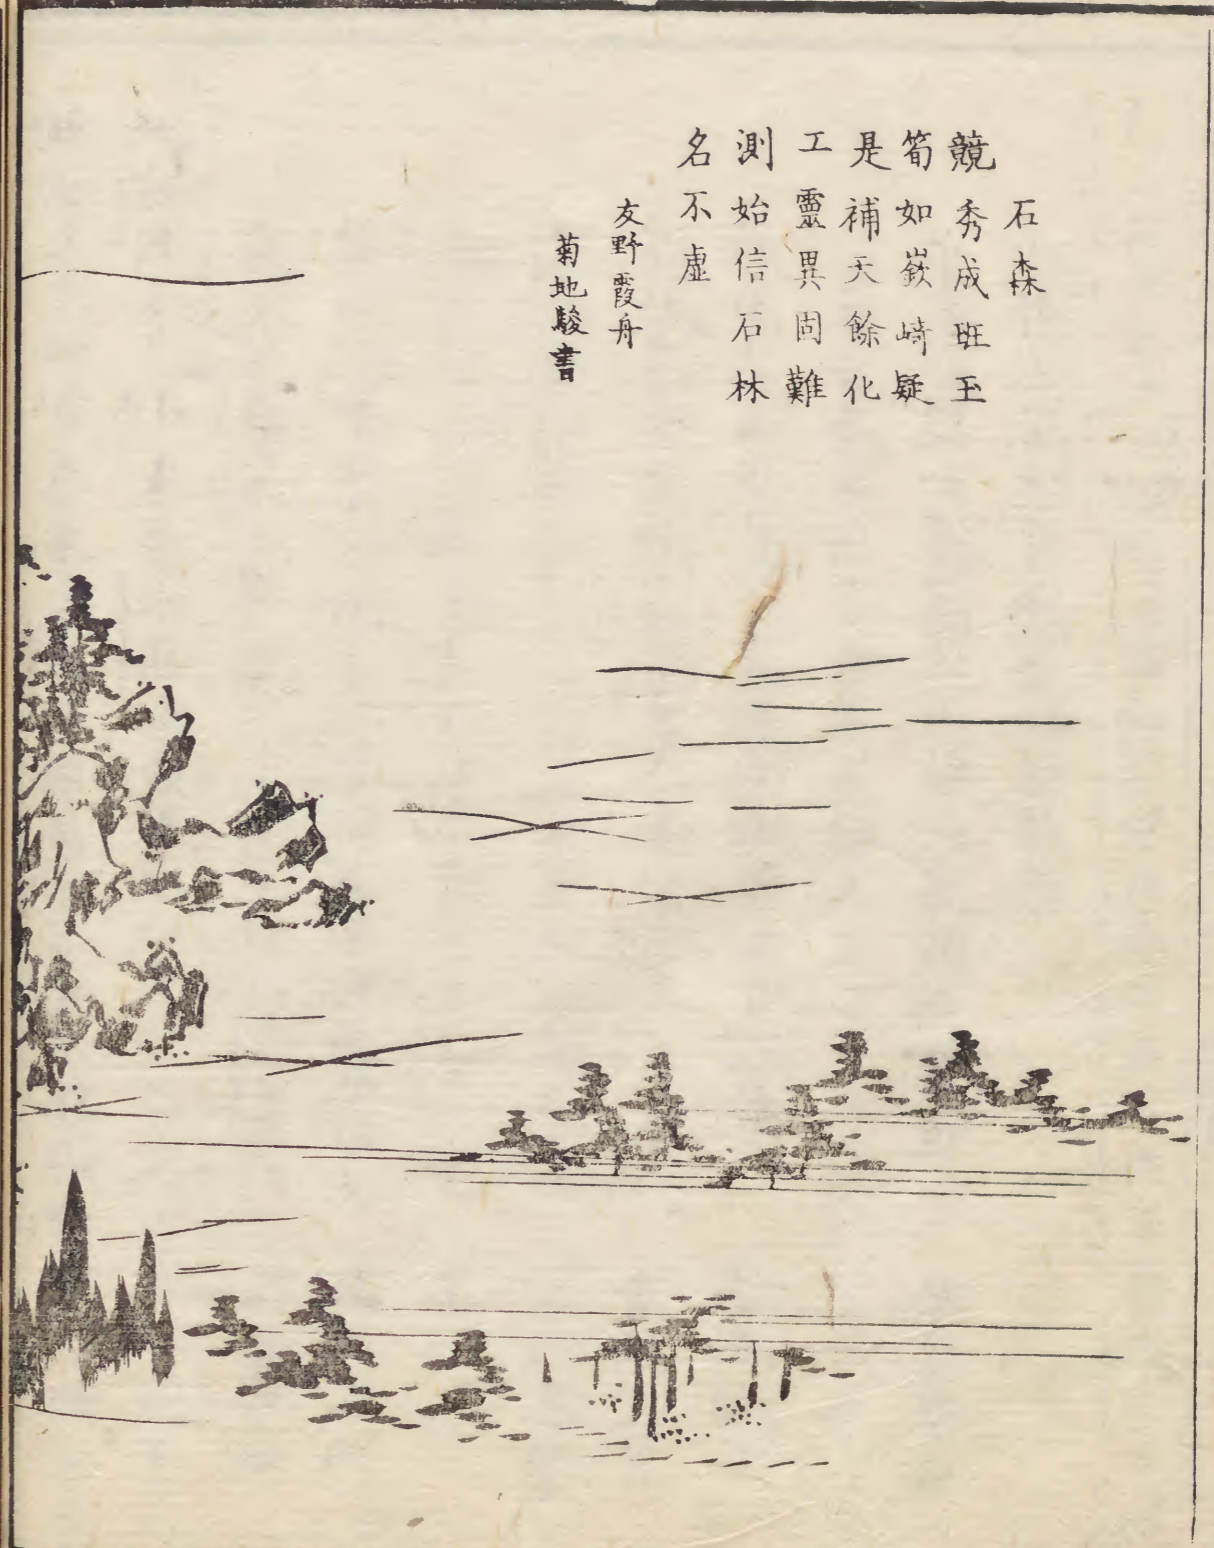 石森
競秀成班玉
筍如嶔崎疑
是補天餘化
工靈異固難
測始信石林
名不虛
友野霞舟
菊地駿書